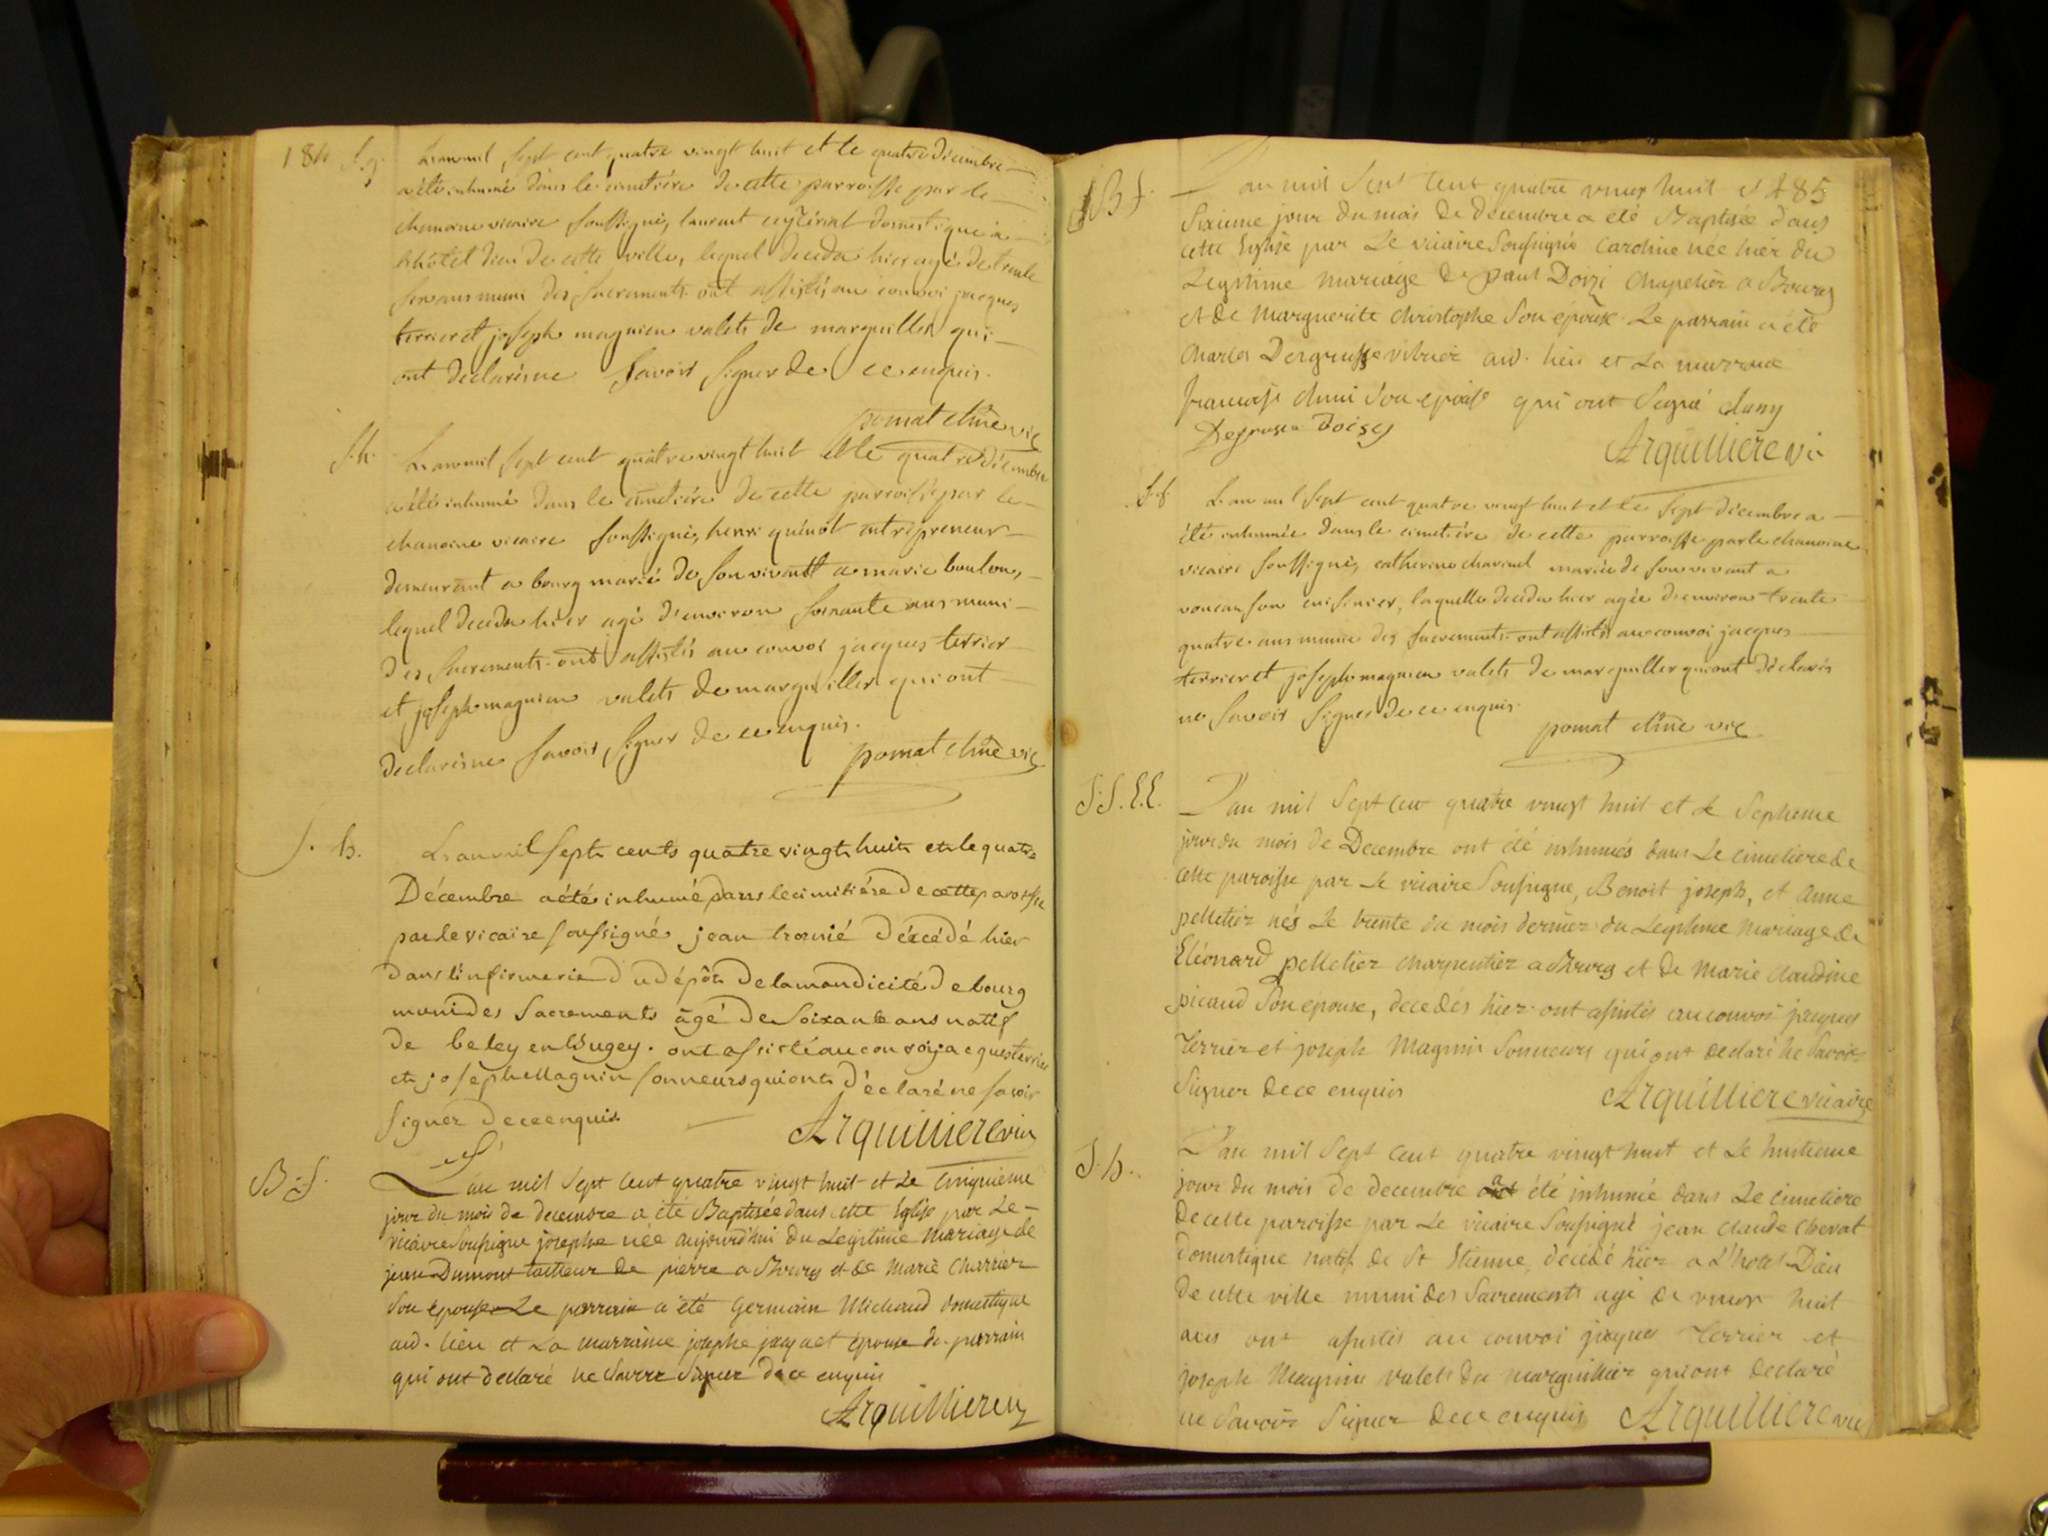 184 S. g. L'an mil sept cent quatre vingt huit et le quatre décembre
a été inhumé dans le cimetiére de cette parroisse par le
chanoine vicaire soussigné, laurent domestique a
l'hôtel dieu de cette ville, lequel deceda hier agé de trente
six ans muni des sacrements ont assistés au convoi jacques
terrier et joseph magnien valets de marguiller qui
ont declarés ne savoir signer de ce enquis.
pomat chne vic
S. h. L'an mil sept cent quatre vingt huit et le quatre décembre
a été inhumé dans le cimetiére de cette parroisse par le
chanoine vicaire soussigné, henri quinot entrepreneur
demeurant a bourg marié de son vivant a marie boulon,
lequel deceda hier agé d'environ soixante ans muni
des sacrements ont assistés au convoi jacques terrier
et joseph magnien valets de marguiller qui ont
declarés ne savoir signer de ce enquis.
pomat chne vic
S. h. L'an mil sept cents quatre vingt huit et le quatre
Décembre a été inhumé dans le cimitiére de cette paroisse
par le vicaire soussigné jean décédé hier
dans l'infirmerie du dépôt de la mandicité de bourg
muni des Sacrements âgé de Soixante ans natif
de beley en Bugey. ont assisté au convoi jacques terrier
et joseph Magnin sonneurs qui ont déclaré ne savoir
signer de ce enquis.
Arquilliere vic
B. f. L'an mil Sept Cent quatre vingt huit et Le Cinquieme
jour du mois de decembre a été Baptisée dans cette Eglise par Le
vicaire Sousigné josephe née aujourd'hui du Legitime Mariage de
jean Dumont tailleur de pierre a Bourg et de Marie Charrier
Son épouse Le parrain a été Germain Michaud domestique
aud. lieu et La marraine josephe jaquet épouse du parrain
qui ont declaré ne Savoir Signer de ce enquis
Arquilliere v
B f. L'an mil Sept Cent quatre vingt huit et 185
Sixieme jour du mois de decembre a été Baptisée dans
cette Eglise par Le vicaire Sousigné Caroline née hier du
Legitime mariage de paul Doizi Chapelier a Bourg
et de Marguerite Christophe Son épouse Le parrain a été
Charles Degrusse vitrier aud. lieu et La marraine
françoise Son épouse qui ont Signé
Degrusse Doisy
Arquilliere vic
S. f. L'an mil sept cent quatre vingt huit et le sept décembre a
été inhumée dans le cimetiére de cette parroisse par le chanoine
vicaire soussigné, catherine mariée de son vivant a
cuisinier, laquelle deceda hier agée d'environ trente
quatre ans munie des sacrements ont assistés au convoi jacques
terrier et joseph magnien valets de marguiller qui ont déclarés
ne savoir signer de ce enquis.
pomat chne vic
S. S. E. E. L'an mil Sept Cent quatre vingt huit et Le Septieme
jour du mois de Decembre ont été inhumés dans Le cimetiere de
cette paroisse par Le vicaire Sousigné, Benoit joseph, et Anne
pelletier nés Le trente du mois dernier du Legitime Mariage de
Eléonard pelletier charpentier a Bourg et de Marie Claudine
picaud Son épouse, decedés hier ont assistés au convoi jaques
Terrier et joseph Magnin Sonneurs qui ont declaré ne Savoir
Signer de ce enquis
Arquilliere vicaire
S. h. L'an mil Sept Cent quatre vingt huit et Le huitieme
jour du mois de decembre a été inhumé dans Le cimetiere
de cette paroisse par Le vicaire Sousigné jean Claude Chevat
domestique natif de St Etienne, decédé hier a L'hotel Dieu
de cette ville muni des Sacrements agé de vingt huit
ans ont assistés au convoi jaques Terrier et
joseph Magnin valets du marguillier qui ont declaré
ne Savoir Signer de ce enquis Arquilliere vic